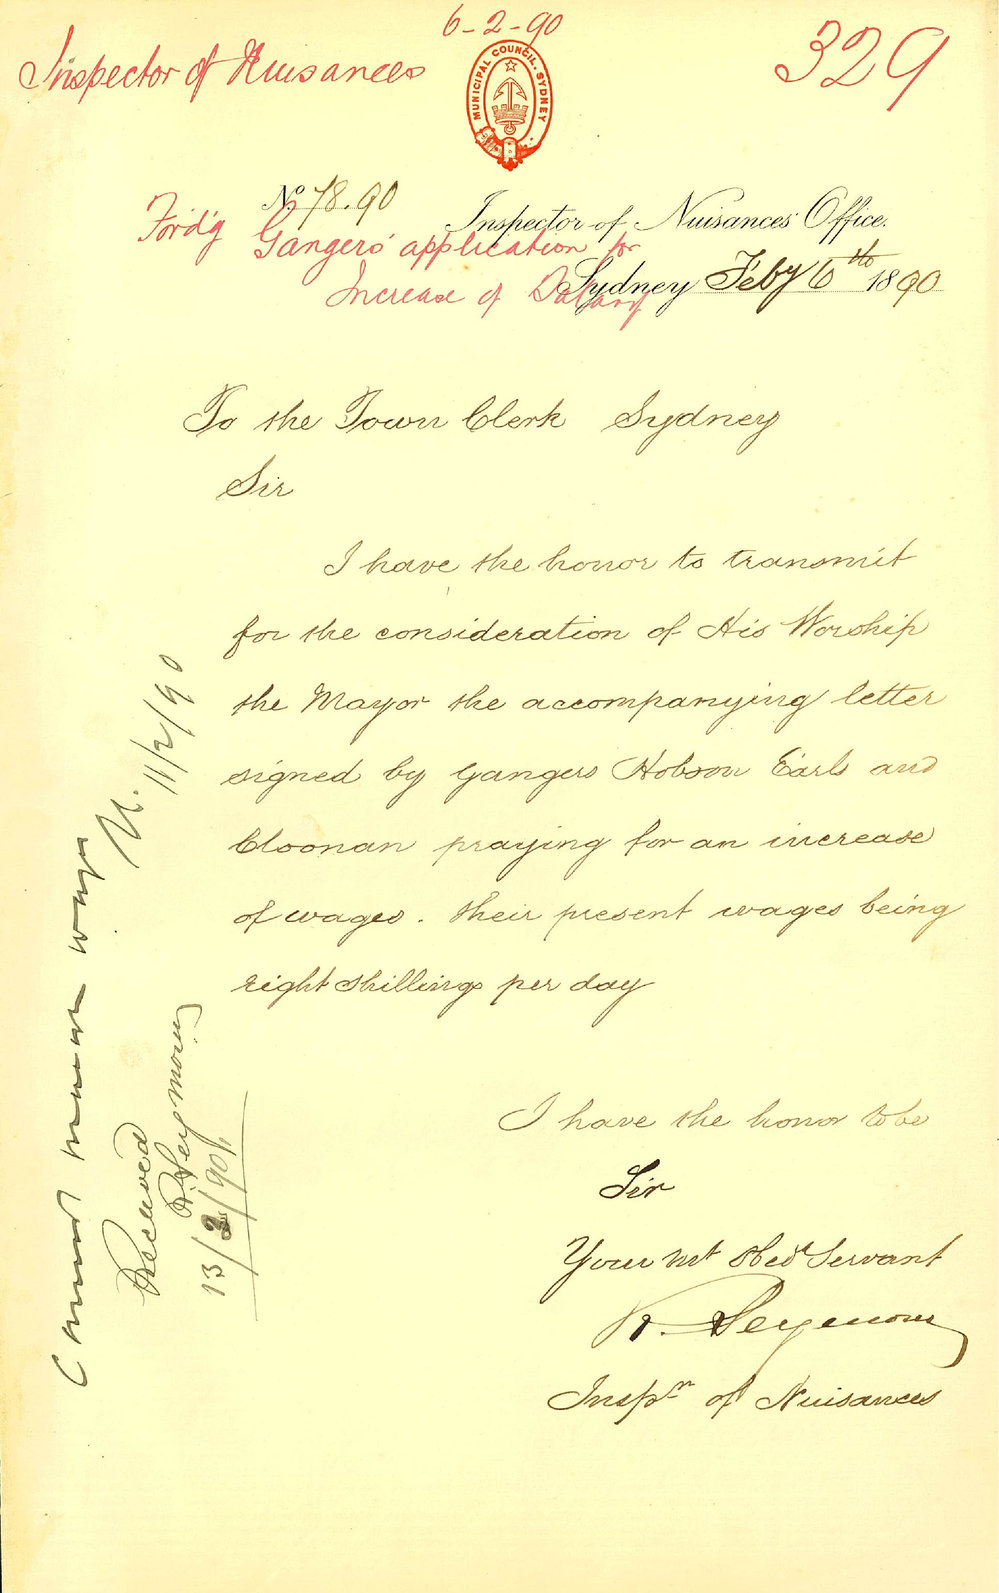 6-2-90
Inspector of Nuisances
329
MUNICIPAL COUNCIL. SYDNEY
No. 78.90
Inspector of Nuisances' Office.
Ford'g Gangers' application for
Increase of Salary
Sydney Feby 6th 1890
To the Town Clerk Sydney
Sir
I have the honor to transmit
for the consideration of His Worship
the Mayor the accompanying letter
signed by Gangers Hobson Earls and
Cloonan praying for an increase
of wages. their present wages being
eight shillings per day
I have the honor to be
Sir
Your mt Obedt Servant
R. Seymour
Inspr of Nuisances
Cannot increase wages
11/2/90
Received
R. Seymour
13/2/90